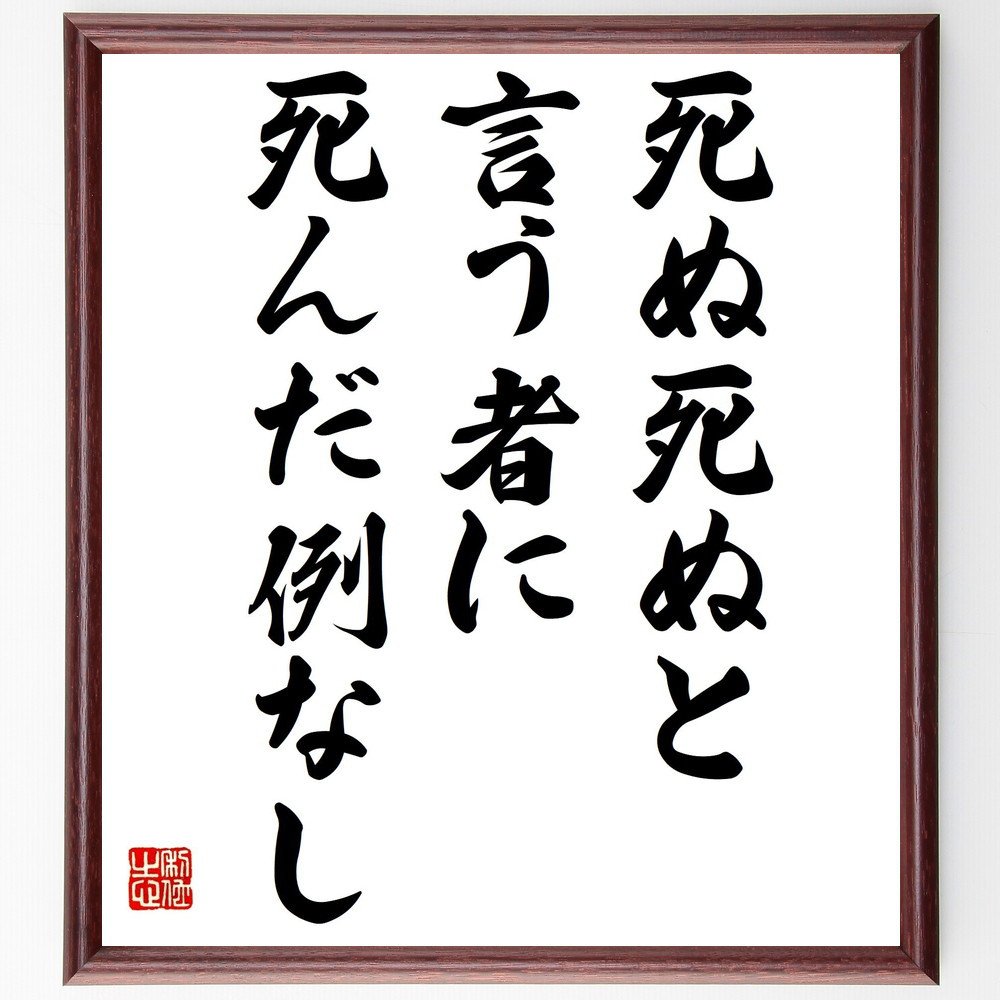 死ぬ死ぬと
言う者に
死んだ例なし